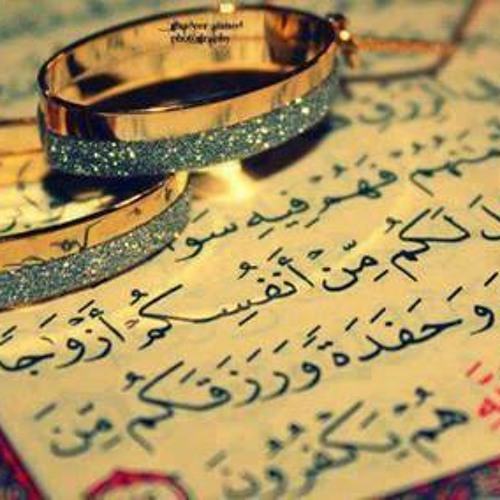 photography
فَهُمْ فِيهِ سَوَ
لَكُم مِّنْ أَنفُسِكُمْ أَزْوَٰجًا
وَحَفَدَةً وَرَزَقَكُم مِّنَ
هُمْ يَكْفُرُونَ